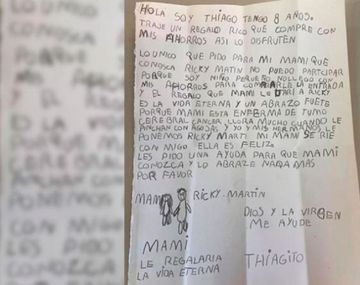 HOLA SOY THIAGO TENGO 8 AÑOS.
TRAJE UN REGALO RICO QUE COMPRE CON
MIS AHORROS ASI LO DISFRUTEN
LO UNICO QUE PIDO PARA MI MAMI QUE
CONOSCA RICKY MATIN NO PUEDO PARTICIPAR
PORQUE SOY NIÑO PERO NO LLEGO CON
MIS AHORROS PARA COMPRARLE LA ENTRADA
Y EL REGALO QUE MAMI LE DARI A RICKY
ES LA VIDA ETERNA Y UN ABRAZO FUETE
PORQUE MAMI ESTA ENFERMA DE TUMO
CEREBRAL CANCER LLORA MUCHO CUANDO LE
PINCHAN CON AGUJAS Y YO Y MIS HERMANOS LE
PONEMOS RICKY MARTI. MI MAMI SE RIE
CON MIGO ELLA ES FELIZ
LES PIDO UNA AYUDA PARA QUE MAMI
CONOZCA Y LO ABRAZE NADA MAS
POR FAVOR
MAMI RICKY-MARTIN
DIOS Y LA VIRGEN
ME AYUDE
MAMI
LE REGALARIA
LA VIDA ETERNA
THIAGITO